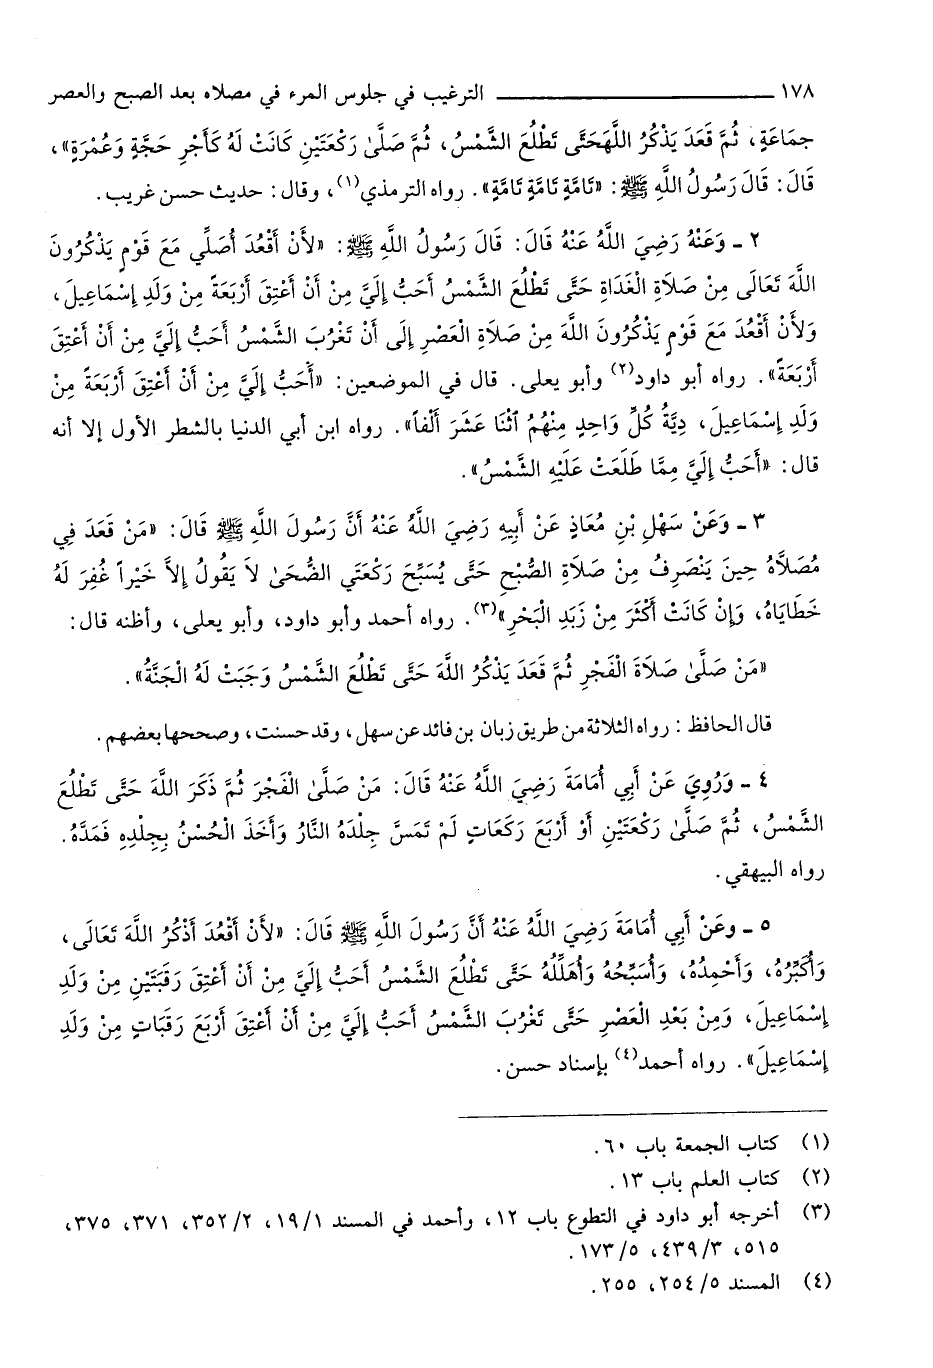 ١٧٨ ــــــــــــ الترغيب في جلوس المرء في مصلاه بعد الصبح والعصر
جمَاعَةٍ، ثُمَّ قَعَدَ يَذْكُرُ اللَّهَحَتَّى تَطْلُعَ الشَّمْسُ، ثُمَّ صَلَّىٰ رَكْعَتَيْنِ كَانَتْ لَهُ كَأَجْرِ حَجَّةٍ وَعُمْرَةٍ»،
قَالَ: قَالَ رَسُولُ اللَّهِ ﷺ: «تَامَّةٍ تَامَّةٍ تَامَّةٍ». رواه الترمذي(١)، وقال: حديث حسن غريب.
٢ ـ وَعَنْهُ رَضِيَ اللَّهُ عَنْهُ قَالَ: قَالَ رَسُولُ اللَّهِ ﷺ: «لأَنْ أَقْعُدَ أُصَلِّي مَعَ قَوْمٍ يَذْكُرُونَ
اللَّهَ تَعَالَى مِنْ صَلَاةِ الْغَدَاةِ حَتَّى تَطْلُعَ الشَّمْسُ أَحَبُّ إِلَيَّ مِنْ أَنْ أَعْتِقَ أَرْبَعَةً مِنْ وَلَدِ إِسْمَاعِيلَ،
وَلأَنْ أَقْعُدَ مَعَ قَوْمٍ يَذْكُرُونَ اللَّهَ مِنْ صَلَاةِ الْعَصْرِ إِلَى أَنْ تَغْرُبَ الشَّمْسُ أَحَبُّ إِلَيَّ مِنْ أَنْ أَعْتِقَ
أَرْبَعَةً». رواه أبو داود(٢) وأبو يعلى. قال في الموضعين: «أَحَبُّ إِلَيَّ مِنْ أَنْ أَعْتِقَ أَرْبَعَةً مِنْ
وَلَدِ إِسْمَاعِيلَ، دِيَّةُ كُلِّ وَاحِدٍ مِنْهُمُ ٱثْنَا عَشَرَ أَلْفاً». رواه ابن أبي الدنيا بالشطر الأول إلا أنه
قال: «أَحَبُّ إِلَيَّ مِمَّا طَلَعَتْ عَلَيْهِ الشَّمْسُ».
٣ ـ وَعَنْ سَهْلِ بْنِ مُعَاذٍ عَنْ أَبِيهِ رَضِيَ اللَّهُ عَنْهُ أَنَّ رَسُولَ اللَّهِ ﷺ قَالَ: «مَنْ قَعَدَ فِي
مُصَلاَّهُ حِينَ يَنْصَرِفُ مِنْ صَلَاةِ الصُّبْحِ حَتَّى يُسَبِّحَ رَكْعَتَيِ الضُّحَىٰ لاَ يَقُولُ إِلاَّ خَيْراً غُفِرَ لَهُ
خَطَايَاهُ، وَإِنْ كَانَتْ أَكْثَرَ مِنْ زَبَدِ الْبَحْرِ»(٣). رواه أحمد وأبو داود، وأبو يعلى، وأظنه قال:
«مَنْ صَلَّىٰ صَلَاةَ الْفَجْرِ ثُمَّ قَعَدَ يَذْكُرُ اللَّهَ حَتَّى تَطْلُعَ الشَّمْسُ وَجَبَتْ لَهُ الْجَنَّةُ».
قال الحافظ: رواه الثلاثة من طريق زبان بن فائد عن سهل، وقد حسنت، وصححها بعضهم.
٤ ـ وَرُوِيَ عَنْ أَبِي أُمَامَةَ رَضِيَ اللَّهُ عَنْهُ قَالَ: مَنْ صَلَّىٰ الْفَجْرَ ثُمَّ ذَكَرَ اللَّهَ حَتَّى تَطْلُعَ
الشَّمْسُ، ثُمَّ صَلَّىٰ رَكْعَتَيْنِ أَوْ أَرْبَعَ رَكَعَاتٍ لَمْ تَمَسَّ جِلْدَهُ النَّارُ وَأَخَذَ الْحُسْنُ بِجِلْدِهِ فَمَدَّهُ.
رواه البيهقي.
٥ ـ وعَنْ أَبِي أُمَامَةَ رَضِيَ اللَّهُ عَنْهُ أَنَّ رَسُولَ اللَّهِ ﷺ قَالَ: «لأَنْ أَقْعُدَ أَذْكُرُ اللَّهَ تَعَالَى،
وَأُكَبِّرُهُ، وَأَحْمِدُهُ، وَأُسَبِّحُهُ وَأُهَلِّلُهُ حَتَّى تَطْلُعَ الشَّمْسُ أَحَبُّ إِلَيَّ مِنْ أَنْ أَعْتِقَ رَقَبَتَيْنِ مِنْ وَلَدِ
إِسْمَاعِيلَ، وَمِنْ بَعْدِ الْعَصْرِ حَتَّى تَغْرُبَ الشَّمْسُ أَحَبُّ إِلَيَّ مِنْ أَنْ أَعْتِقَ أَرْبَعَ رَقَبَاتٍ مِنْ وَلَدِ
إِسْمَاعِيلَ». رواه أحمد(٤) بإسناد حسن.
(١) كتاب الجمعة باب ٦٠.
(٢) كتاب العلم باب ١٣.
(٣) أخرجه أبو داود في التطوع باب ١٢، وأحمد في المسند ١/ ١٩، ٢/ ٣٥٢، ٣٧١، ٣٧٥،
٥١٥، ٣/ ٤٣٩، ٥/ ١٧٣.
(٤) المسند ٥/ ٢٥٤، ٢٥٥.